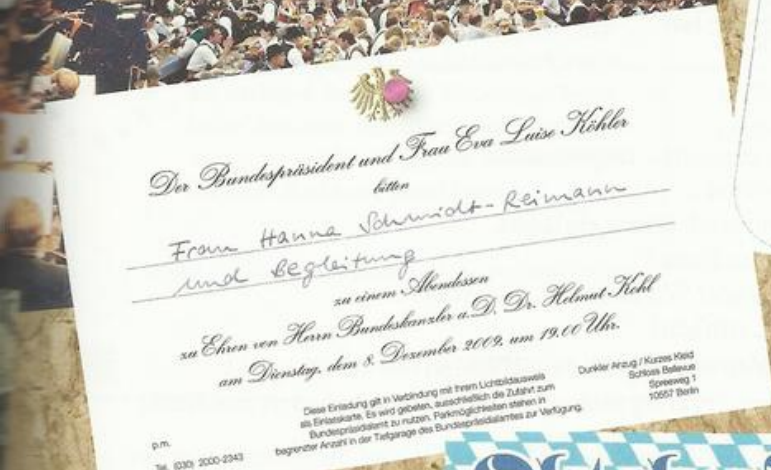 Der Bundespräsident und Frau Eva Luise Köhler
bitten
Frau Hanna Schmidt-Reimann
und Begleitung
zu einem Abendessen
zu Ehren von Herrn Bundeskanzler a.D. Dr. Helmut Kohl
am Dienstag, dem 8. Dezember 2009, um 19.00 Uhr.
Diese Einladung gilt in Verbindung mit Ihrem Lichtbildausweis
als Einlasskarte. Es wird gebeten, ausschließlich die Zufahrt zum
Bundespräsidialamt zu nutzen. Parkmöglichkeiten stehen in
begrenzter Anzahl in der Tiefgarage des Bundespräsidialamtes zur Verfügung.
Dunkler Anzug / Kurzes Kleid
Schloss Bellevue
Spreeweg 1
10557 Berlin
p.m.
Tel. (030) 2000-2343